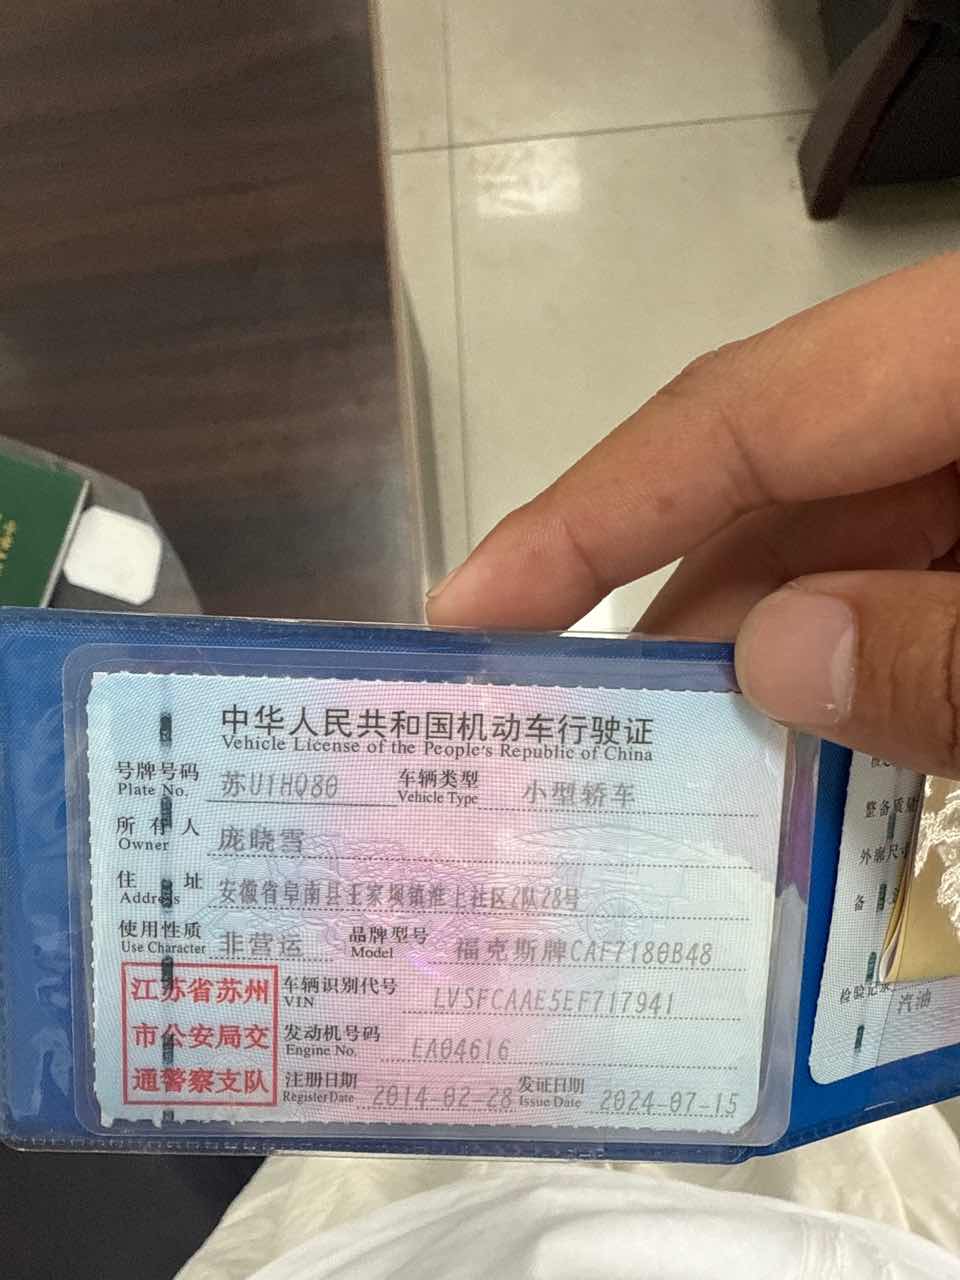 中华人民共和国机动车行驶证
Vehicle License of the People's Republic of China
号牌号码 苏U1HQ80 车辆类型 小型轿车
Plate No. Vehicle Type
所有人 庞晓雪
Owner
住址 安徽省阜南县王家坝镇淮上社区2队28号
Address
使用性质 非营运 品牌型号 福克斯牌CAF7180B48
Use Character Model
江苏省苏州
市公安局交
通警察支队
车辆识别代号 LVSFCAAE5EF717941
VIN
发动机号码 EA04616
Engine No.
注册日期 2014-02-28 发证日期 2024-07-15
Register Date Issue Date
整备质量
外廓尺
备
检验记录
汽油